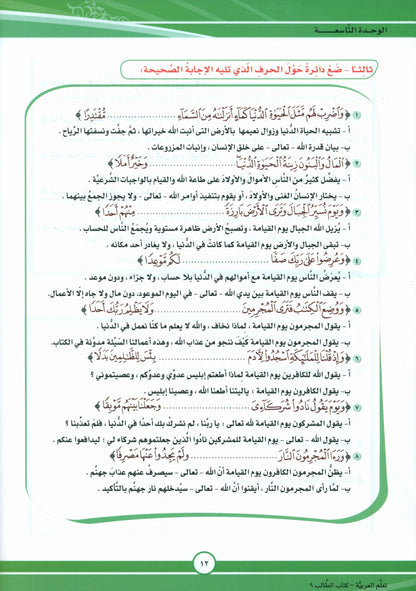 الوحدة التاسعة
ثالثا - ضع دائرة حول الحرف الذي تليه الإجابة الصحيحة:
١ ﴿وَاضْرِبْ لَهُم مَّثَلَ الْحَيَاةِ الدُّنْيَا كَمَاءٍ أَنزَلْنَاهُ مِنَ السَّمَاءِ ........ مُّقْتَدِرًا﴾
أ - تشبيه الحياة الدنيا وزوال نعيمها بالأرض التي أنبت الله خيراتها ، ثمّ جفّت ونسفتها الرّياح .
ب - بيان قدرة الله - تعالى - على خلق الإنسان ، وإنبات المزروعات .
٢ ﴿الْمَالُ وَالْبَنُونَ زِينَةُ الْحَيَاةِ الدُّنْيَا ........ وَخَيْرٌ أَمَلًا﴾
أ - يفضّل كثيرٌ من النّاس الأموال والأولاد على طاعة الله والقيام بالواجبات الشّرعيّة .
ب - يختار الإنسان الغنى والأولاد ، أو يقوم بتنفيذ أوامر الله - تعالى - ولا يجوز الجمع بينهما .
٣ ﴿وَيَوْمَ نُسَيِّرُ الْجِبَالَ وَتَرَى الْأَرْضَ بَارِزَةً ........ مِنْهُمْ أَحَدًا﴾
أ - يُزيل الله الجبال يوم القيامة ، وتصبح الأرض ظاهرة مستوية ويُجمَع النّاس للحساب .
ب - تبقى الجبال والأرض يوم القيامة كما كانتْ في الدّنيا ، ولا يغادر أحد مكانه .
٤ ﴿وَعُرِضُوا عَلَىٰ رَبِّكَ صَفًّا ........ لَكُم مَّوْعِدًا﴾
أ - يُعرَضُ النّاس يوم القيامة مع أموالهم في الدّنيا بلا حساب ، ولا جزاء ، ودون موعد .
ب - يقف النّاس يوم القيامة بين يدي الله - تعالى - في اليوم الموعود، دون مال ولا جاه إلّا الأعمال.
٥ ﴿وَوُضِعَ الْكِتَابُ فَتَرَى الْمُجْرِمِينَ ........ وَلَا يَظْلِمُ رَبُّكَ أَحَدًا﴾
أ - يقول المجرمون يوم القيامة ، لماذا نخاف ، والله لا يعلم ما كنّا نعمل في الدّنيا .
ب - يقول المجرمون يوم القيامة كيْفَ ننجو من عذاب الله ، وهذه أعمالنا السّيّئة مدوّنة في الكتاب.
٦ ﴿وَإِذْ قُلْنَا لِلْمَلَائِكَةِ اسْجُدُوا لِآدَمَ ........ بِئْسَ لِلظَّالِمِينَ بَدَلًا﴾
أ - يقول الله للكافرين يوم القيامة لماذا أطعتم إبليس عدوّي وعدوّكم ، وعصيتموني ؟
ب - يقول الكافرون يوم القيامة : ياليتنا أطعنا الله ، وعصينا إبليس .
٧ ﴿وَيَوْمَ يَقُولُ نَادُوا شُرَكَائِيَ ........ وَجَعَلْنَا بَيْنَهُم مَّوْبِقًا﴾
أ - يقول المشركون يوم القيامة لله تعالى : يا ربّنا ، لم نشركْ بك أحدًا في الدّنيا ، فلِمَ تعذّبنا ؟
ب - يقول الله - تعالى - يوم القيامة للمشركين نادُوا الّذين جعلتموهم شركاء لي ؛ ليدافعوا عنكم .
٨ ﴿وَرَأَى الْمُجْرِمُونَ النَّارَ ........ وَلَمْ يَجِدُوا عَنْهَا مَصْرِفًا﴾
أ - يظنّ المجرمون الكافرون يوم القيامة أنّ الله - تعالى - سيصرف عنهم عذابَ جهنّم .
ب - لمّا رأى المجرمون النّار ، أيقنوا أنّ الله - تعالى - سيدخلهم نار جهنّم بالتّأكيد .
١٢
تعلّم العربيّة - كتاب الطّالب ٩